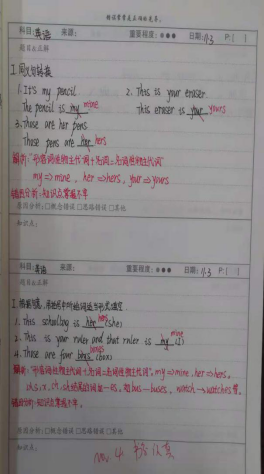 科目:英语 来源: 重要程度:●●● 日期:11.3 P.( )
题目&正解
I.同义句转换
1. It's my pencil. 2. This is your eraser.
The pencil is my mine This eraser is your yours
3. Those are her pens
Those pens are her hers
解析:"形容词性物主代词+名词=名词性物主代词"
my => mine , her => hers, your => yours
错因分析:知识点掌握不牢
原因分析:□概念错误 □思路错误 □其他
知识点:
科目:英语 来源: 重要程度:●●● 日期:11.3 P.( )
题目&正解
1. This schoolbag is her hers (she)
2. This is your ruler and that ruler is my mine (I)
4. Those are four boxs boxes (box)
解析:"形容词性物主代词+名词=名词性物主代词", my => mine, her => hers,
ch, s, x, sh, 结尾的词加-es, 如 bus—buses, watch → watches 等.
错因分析:知识点掌握不牢.
原因分析:□概念错误 □思路错误 □其他
知识点: